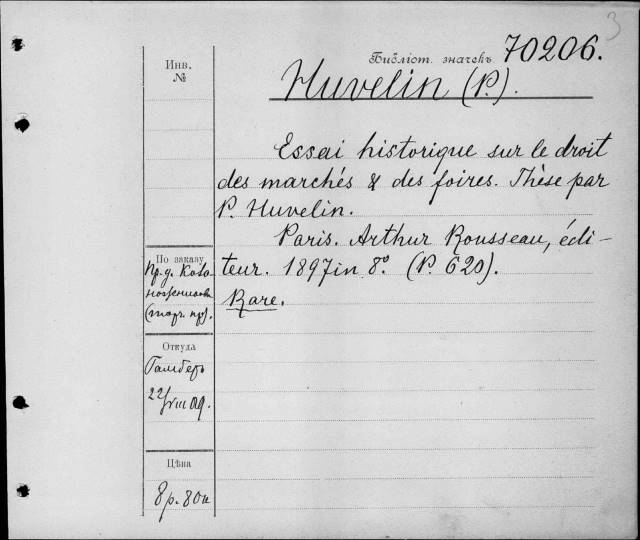 3
Библіот. значекъ 70206.
Инв.
№
Huvelin (P.).
Essai historique sur le droit
des marchés & des foires. Thèse par
P. Huvelin.
Paris. Arthur Rousseau, édi-
teur. 1897 in 8º. (P. 620).
Rare.
По заказу
пр.д.
(торг. пр).
Откуда
Гамберъ
22/VIII 09.
Цѣна
8 р. 80 к